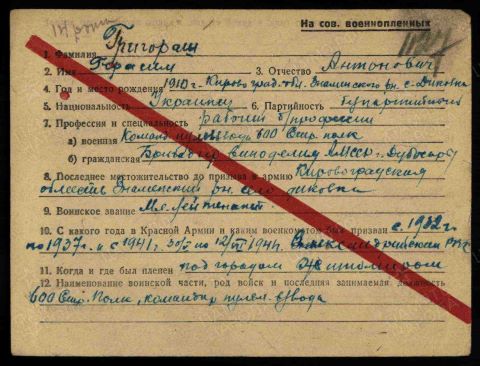 На сов. военнопленных
1. Фамилия Григораш
2. Имя Герасим 3. Отчество Антонович
4. Год и место рождения 1910 г. Кировоград. обл. Знаменского рн. с. Диковка
5. Национальность Украинец 6. Партийность безпартийный
7. Профессия и специальность рабочий б/профессии
а) военная Команд. пульвзвода 600 Стр. полк
б) гражданская Бригадир виноделия АМССР г. Дубосары
8. Последнее местожительство до призыва в армию Кировоградская
область Знаменский рн. село Диковка
9. Воинское звание Мл. лейтенант
10. С какого года в Красной Армии и каким военкоматом был призван с 1932 г.
по 1937 г. и с 1941 г. по 1941 г. Александрийский
11. Когда и где был пленен под городом Житомиром
12. Наименование воинской части, род войск и последняя занимаемая должность
600 Стр. Полк, командир пулем. взвода